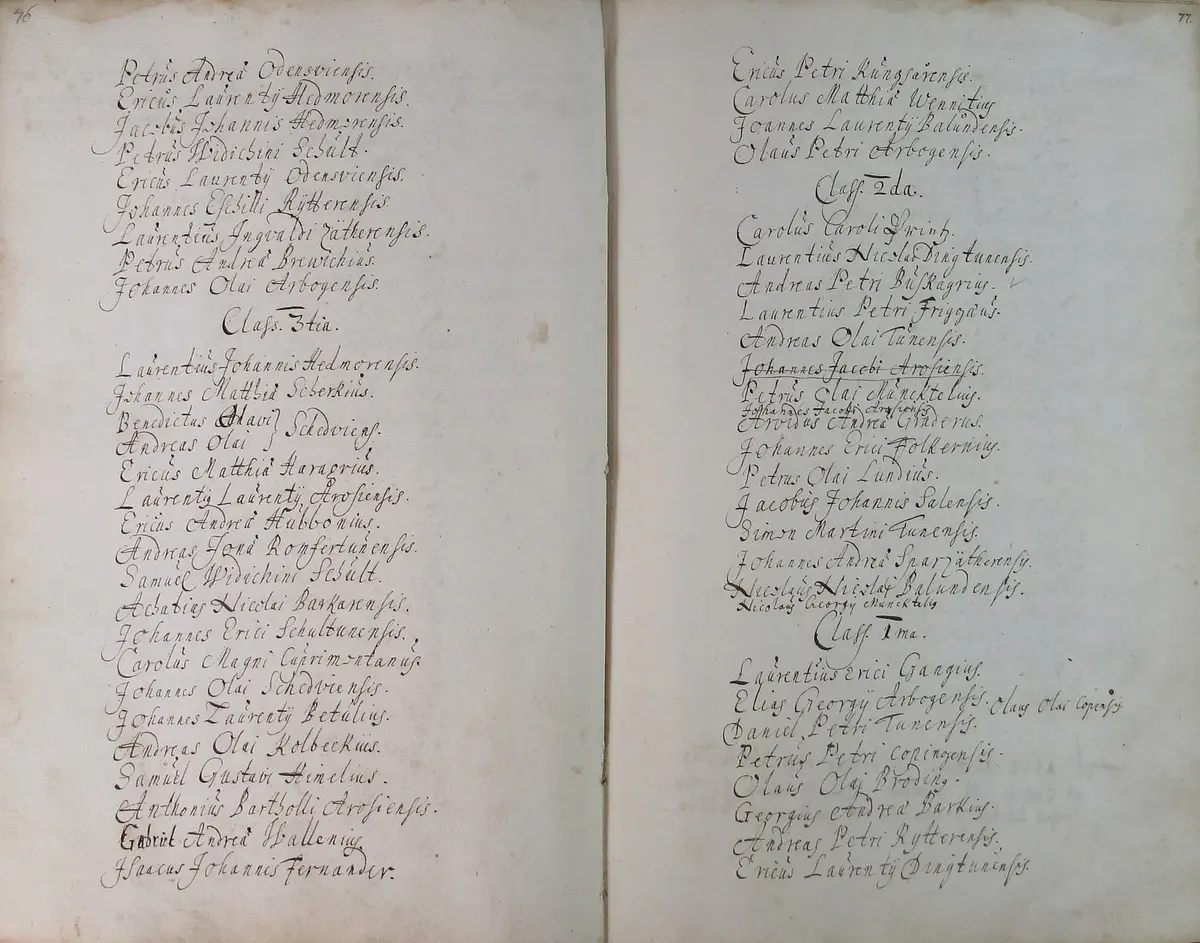 76
Petrus Andreæ Odensviensis.
Ericus Laurentÿ Hedmorensis.
Jacobus Johannis Hedmorensis.
Petrus Widichini Schult.
Ericus Laurentÿ Odensviensis.
Johannes Eschilli Rÿtterensis.
Laurentius Jngvaldi Zätherensis.
Petrus Andreæ Brewichius.
Johannes Olai Arbogensis.
Class. 3tia.
Laurentius Johannis Hedmorensis.
Johannes Matthiæ Scherkius.
Benedictus Olavi
Andreas Olai } Schedviens.
Ericus Matthiæ Haragrius.
Laurentÿ Laurentÿ Arosiensis.
Ericus Andreæ Hubbonius.
Andreas Jonæ Romfertunensis.
Samuel Widichini Schult.
Achatias Nicolai Barkarensis.
Johannes Erici Schultunensis.
Carolus Magni Cuprimontanus.
Johannes Olai Schedviensis.
Johannes Laurentÿ Betulius.
Andreas Olai Kolbeckius.
Samuel Gustavi Himelius.
Anthonius Bartholli Arosiensis.
Gabriel Andreæ Wallenius
Jsaacus Johannis Fernander.
77.
Ericus Petri Kungsärensis.
Carolus Matthiæ Wennitius
Joannes Laurentÿ Balundensis.
Olaus Petri Arbogensis.
Class. 2da.
Carolus Caroli Printz.
Laurentius Nicolai Dingtunensis.
Andreas Petri Buskagrius.
Laurentius Petri Friggæus.
Andreas Olai Tunensis.
Johannes Jacobi Arosiensis.
Petrus Olai Muncktelius.
Johannes Jacobi Arosiensis
Arvidus Andreæ Graderus.
Johannes Erici Folkernius.
Petrus Olai Lundius.
Jacobus Johannis Salensis.
Simon Martini Tunensis.
Johannes Andreæ Snarzätherensis.
Nicolaus Nicolai Balundensis.
Nicolaus Georgÿ Muncktelis
Class. 1ma.
Laurentius Erici Gangius.
Elias Georgÿ Arbogensis. Olaus Olai Copensis
Daniel Petri Tunensis.
Petrus Petri Copingensis.
Olaus Olai Broding.
Georgius Andreæ Barkius.
Andreas Petri Rytterensis.
Ericus Laurentÿ Dingtunensis.